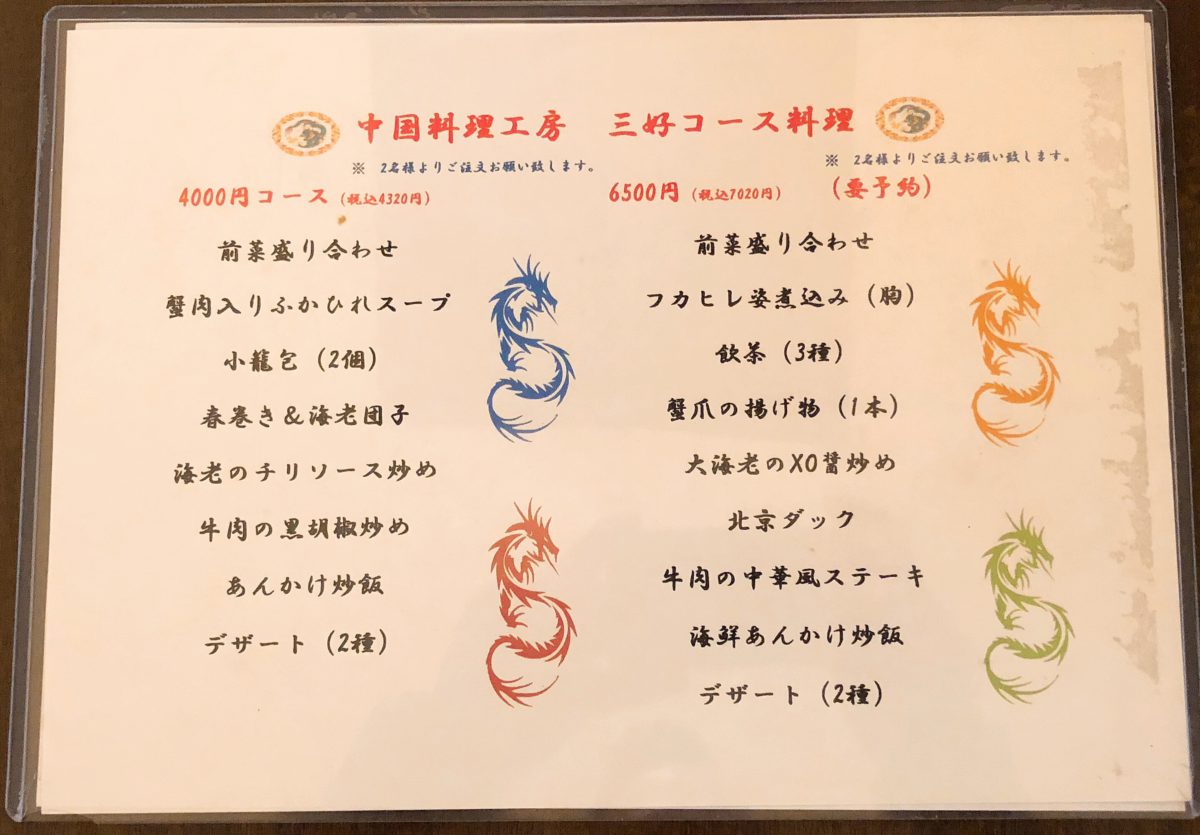 中国料理工房 三好コース料理
※ 2名様よりご注文お願い致します。
4000円コース（税込4320円）
前菜盛り合わせ
蟹肉入りふかひれスープ
小龍包（2個）
春巻き＆海老団子
海老のチリソース炒め
牛肉の黒胡椒炒め
あんかけ炒飯
デザート（2種）
※ 2名様よりご注文お願い致します。
6500円（税込7020円）（要予約）
前菜盛り合わせ
フカヒレ姿煮込み（胸）
飲茶（3種）
蟹爪の揚げ物（1本）
大海老のXO醤炒め
北京ダック
牛肉の中華風ステーキ
海鮮あんかけ炒飯
デザート（2種）